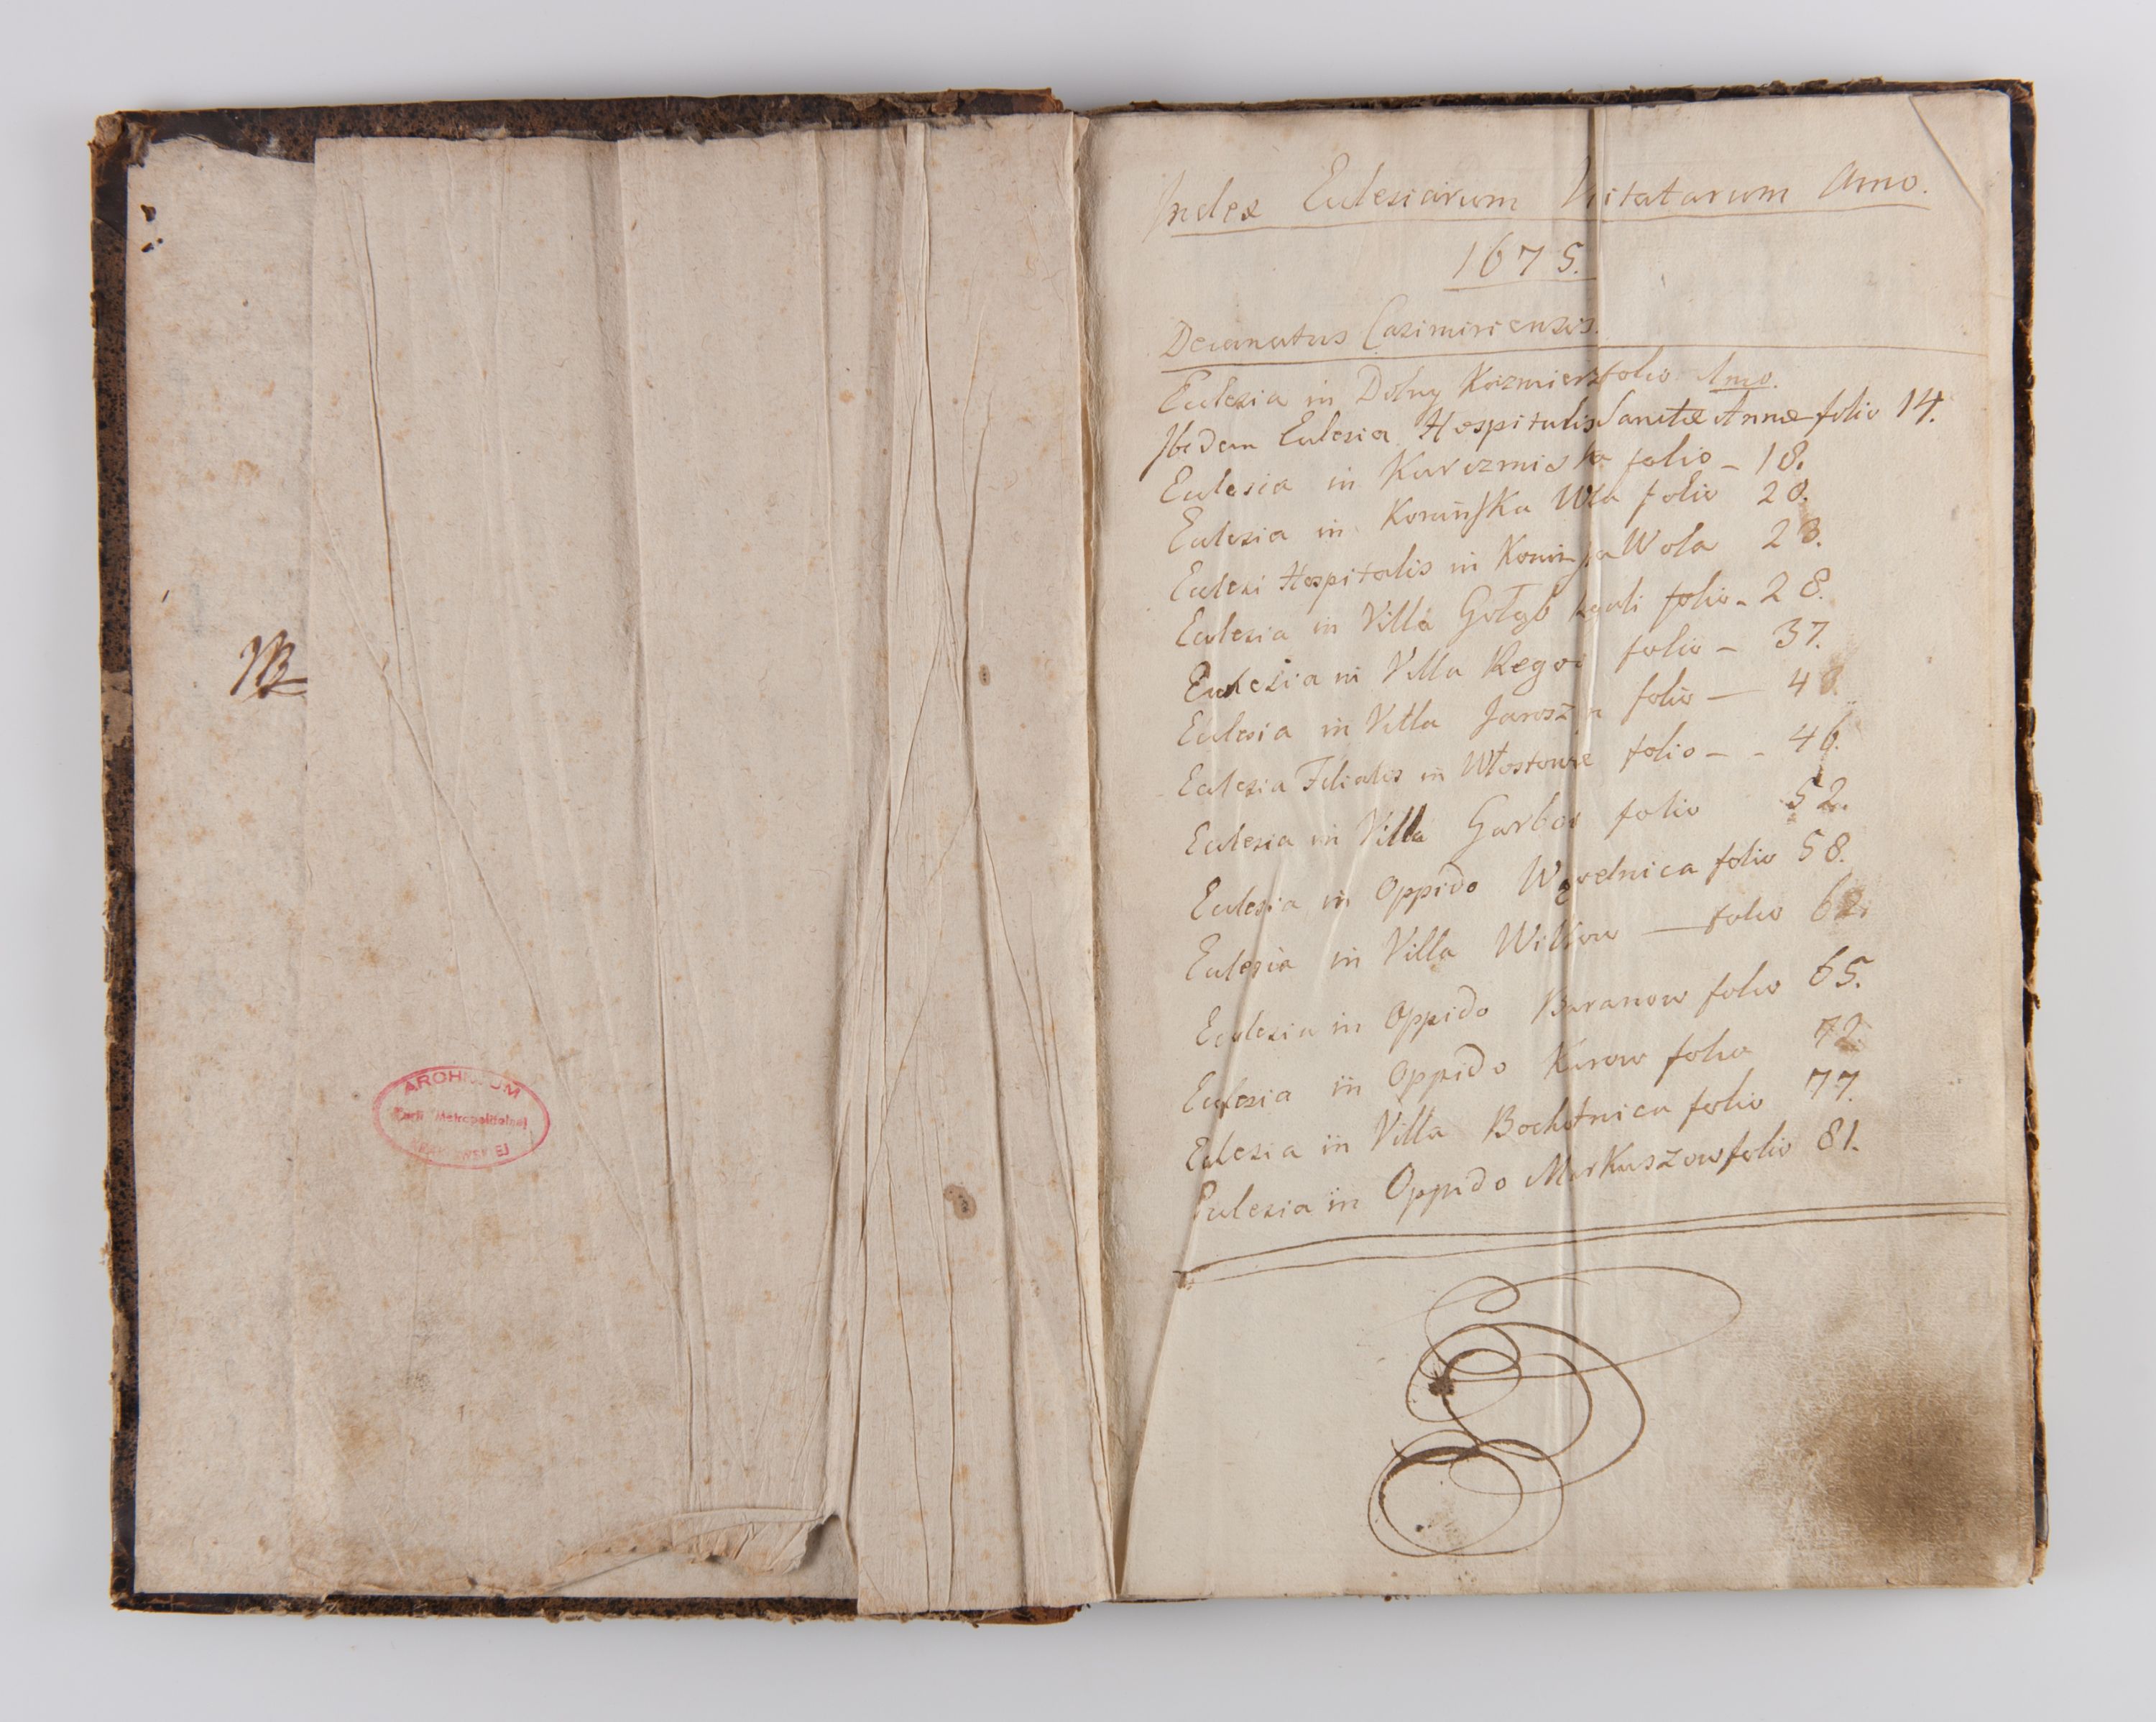 ARCHIWUM
Kurii Metropolitalnej
Index Ecclesiarum Visitatarum Anno.
1675.
Decanatus Casimiriensis.
Ecclesia in Dolny Kazmierz folio 1mo.
Ibidem Ecclesia Hospitalis Sanctæ Annæ folio 14.
Ecclesia in folio - 18.
Ecclesia in Konińska Wla folio 20.
Ecclesi Hospitalis in Wola 23.
Ecclesia in Villa Gołąb folio - 28.
Ecclesia in Villa Regow folio - 37.
Ecclesia in Villa folio — 43.
Ecclesia Filialis in Włostowice folio - - 46.
Ecclesia in Villa Garbow folio 52.
Ecclesia in Oppido Wąvelnica folio 58.
Ecclesia in Villa Wilkow — folio 62.
Ecclesia in Oppido Baranow folio 65.
Ecclesia in Oppido Kurow folio 72.
Ecclesia in Villa Bochotnica folio 77.
Ecclesia in Oppido Markuszow folio 81.